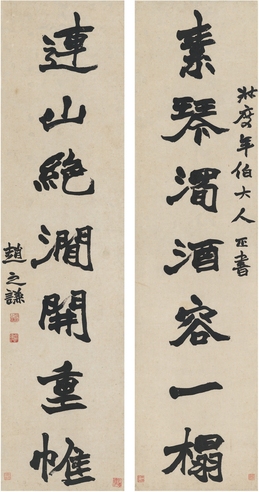 素琴濁酒容一榻
壯度年伯大人正書
連山絕澗開重帷
趙之謙